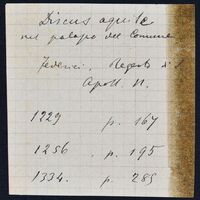 Discus aquile
nel palazo del Comune
Federici, Regesto di S.
Apoll. N.
1229 p. 167
1256 . p. 195
1334. p. 285